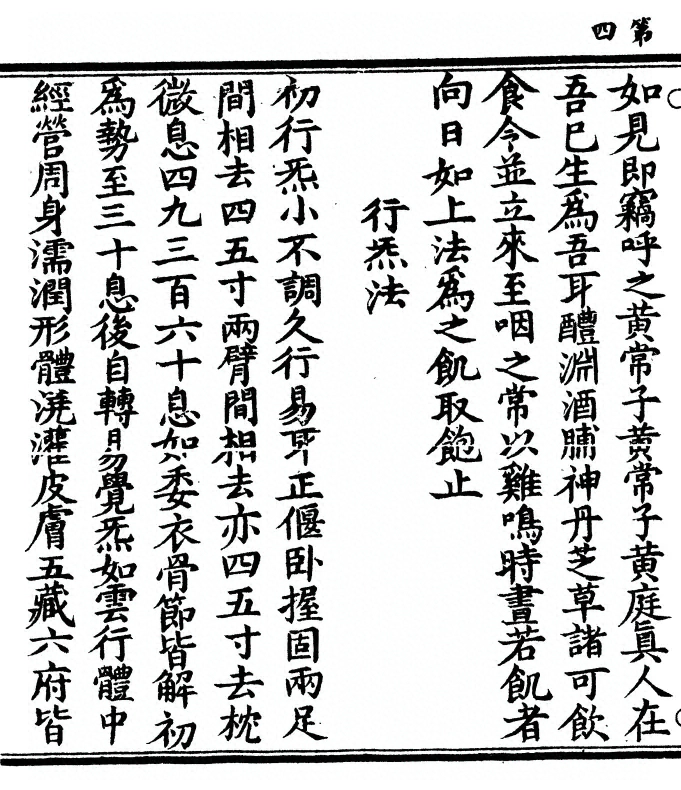 第四
如見即竊呼之黃常子黃常子黃庭眞人在
吾巳生爲吾耳醴淵酒脯神丹芝草諸可飲
食令並立來至咽之常以雞鳴時晝若飢者
向日如上法爲之飢取飽止
行炁法
初行炁小不調久行易耳正偃卧握固兩足
間相去四五寸兩臂間相去亦四五寸去枕
微息四九三百六十息如委衣骨節皆解初
爲勢至三十息後自轉易覺炁如雲行體中
經營周身濡潤形體澆灌皮膚五藏六府皆